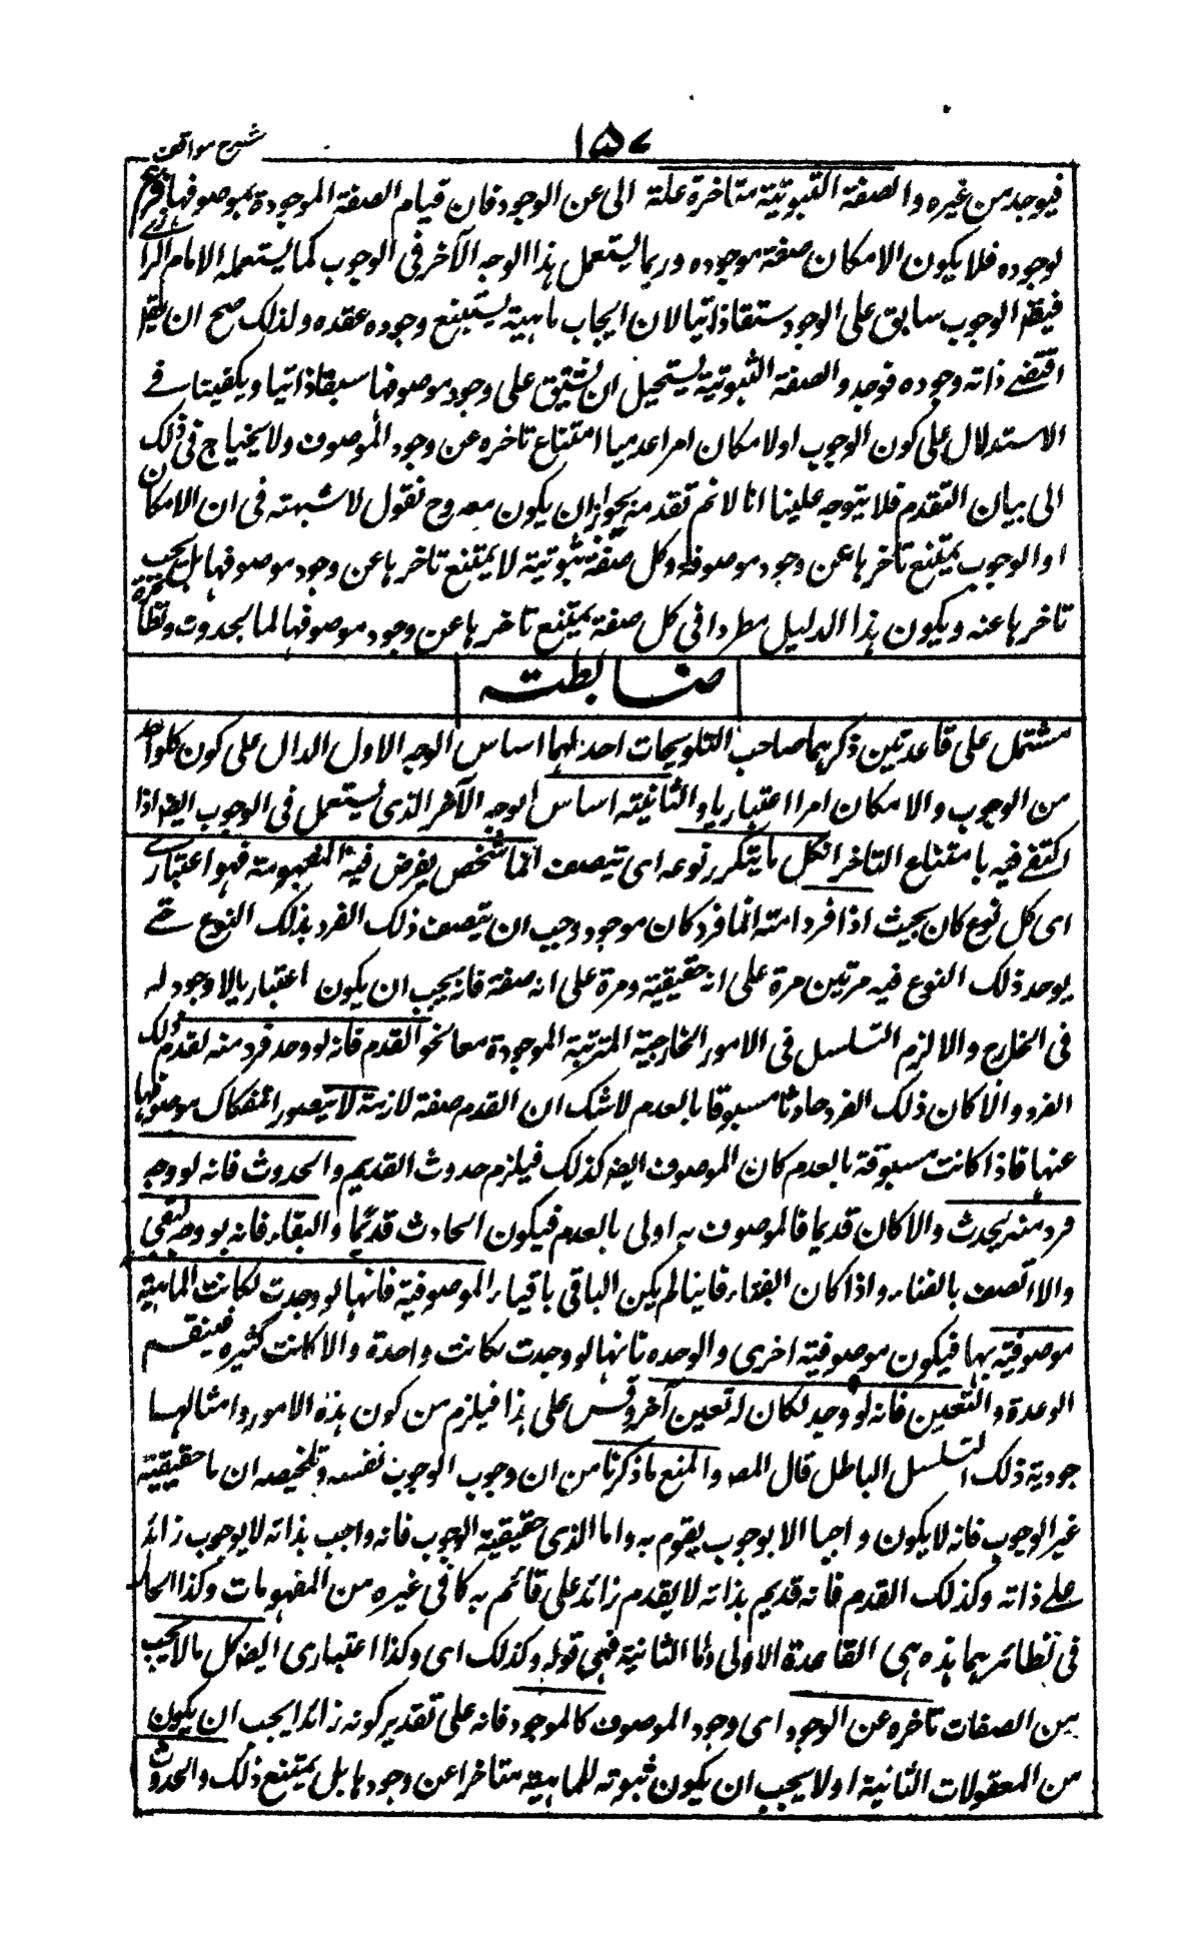 شرح مواقف
١٥٧
فيوجد من غيره والصفة الثبوتية متاخرة علة الى عن الوجود فان قيام الصفة الموجودة بموصوفها فرع
لوجوده فلا يكون الامكان صفة موجوده وربما يستعمل هذا الوجه الآخر فى الوجوب كما يستعمله الامام الرازى
فيقم الوجوب سابق على الوجود سبقا ذاتيا لان ايجاب ماهيته يستتبع وجوده عقده ولذلك صح ان يقم
اقتضے ذاته وجوده فوجد والصفة الثبوتية يستحيل ان تسبق على وجود موصوفها سبقا ذاتيا ويكفينا فے
الاستدلال على كون الوجوب او لامكان امرا عدميا امتناع تاخره عن وجود الموصوف ولا يحتاج فى ذلك
الى بيان التقدم فلا يتوجه علينا انا لا نم تقدمه يجواز ان يكون معه وح نقول لا شبهته فى ان الامكان
او الوجوب يمتنع تاخرها عن وجود موصوفه وكل صفة ثبوتية لا يمتنع تاخرها عن وجود موصوفها بل يجب
تاخرها عنه ويكون هذا الدليل مطردا فى كل صفة يمتنع تاخرها عن وجود موصوفها لما بحدوث ونظائره
ضابطته
مشتمل على قاعدتين ذكرهما صاحب التلويحات احدلهما اساس الوجه الاول الدال على كون كلواحد
من الوجوب والامكان امرا اعتباريا والثانيته اساس الوجه الآخر الذى يستعمل فى الوجوب ايضا اذا
اكتفے فيه بامتناع التاخر انكل ما يتكرر نوعه اى يتصف انما شخص يفرض فيه المفهومته فهو اعتبارى
اى كل نوع كان بحيث اذا فرد امنه انما فرد كان موجود وجب ان يتصف ذلك الفرد بذلك النوع حتے
يوحد ذلك النوع فيه مرتين مرة على انه حقيقية ومرة على انه صفة فانه يجب ان يكون اعتباريا لا وجود له
فى الخارج والا لزم التسلسل فى الامور الخارجية المترتبة الموجودة معا نحو القدم فانه لو وحد فرد منه لقدم ذلك
الفرد والا كان ذلك الفرد حادثا مسبوقا بالعدم لاشك ان القدم صفة لازمته لا يتصور انفكاك موصوفها
عنها فاذا كانت مسبوقة بالعدم كان الموصوف ايضا كذلك فيلزم حدوث القديم والحدوث فانه لو وجد
فرد منه يحدث والا كان قديما فالموصوف به اولى بالعدم فيكون الحادث قديما والبقاء فانه لو وجد لبقى
والا اتصف بالفناء واذا كان البقاء فانيا لم يكن الباقى باقيا والموصوفية فانها لو وجدت لكانت الماهية
موصوفيته بها فيكون موصوفيته اخرى والوحده فانها لو وجدت لكانت واحدة والا كانت كثيره فينقسم
الوحدة والتعين فانه لو وجد لكان له تعين آخر وقس على هذا فيلزم من كون هذه الامور وامثالها
جودية ذلك التسلسل الباطل قال المصـ والمنع ما ذكرنا من ان وجوب الوجوب نفسه وتلخيصه ان ما حقيقيته
غير الوجوب فانه لا يكون واجبا الا بوجوب يقوم به واما الذى حقيقية الوجوب فانه واجب بذاته لا بوجوب زائد
علے ذاته وكذلك القدم فانه قديم بذاته لا يقدم زائد على قائم به كما فى غيره من المفهومات وكذا الحال
فى نظائرهما هذه هى القاعدة الاولى واما الثانية فهى قوله وكذلك اى وكذا اعتبارى ايضا كل ما لا يجب
من الصفات تاخره عن الوجود اى وجود الموصوف كالموجود فانه على تقدير كونه زائدا يجب ان يكون
من المعقولات الثانية او لا يجب ان يكون ثبوته للماهية متاخرا عن وجودها بل يمتنع ذلك والحدوث